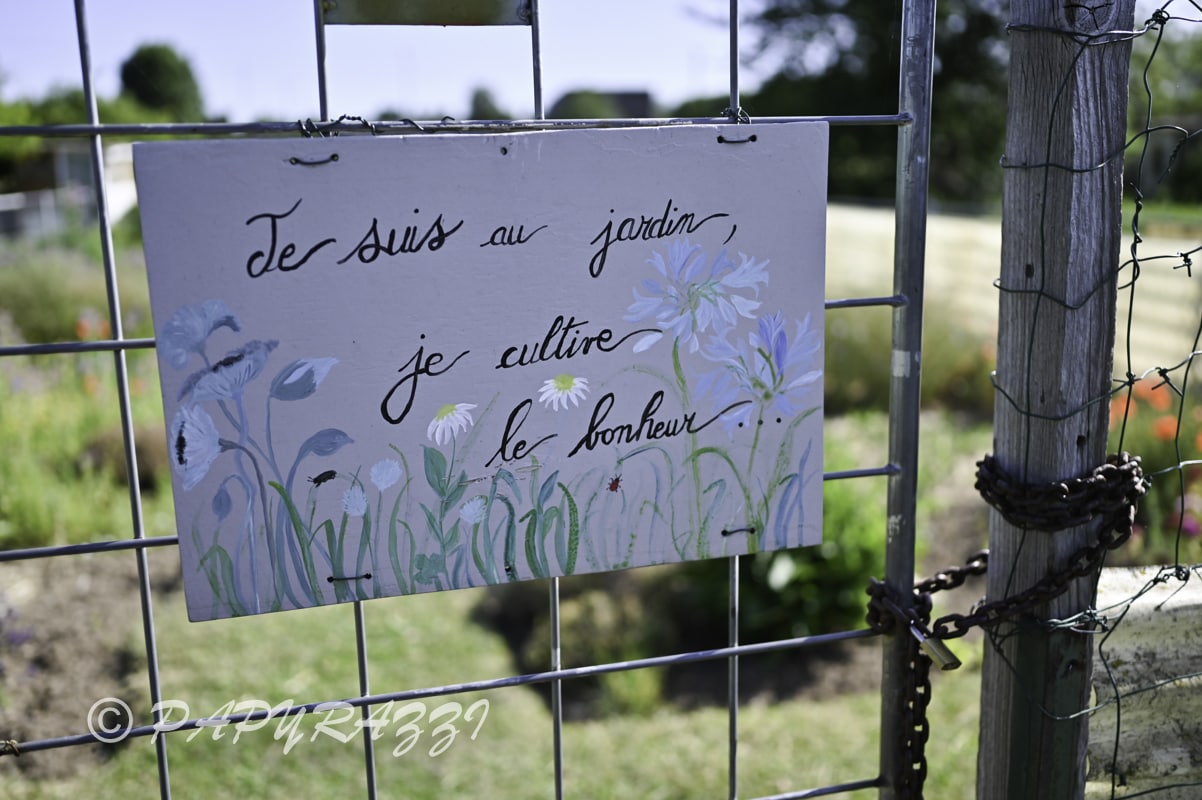 Je suis au jardin,
je cultive
le bonheur...
© PAPYRAZZI